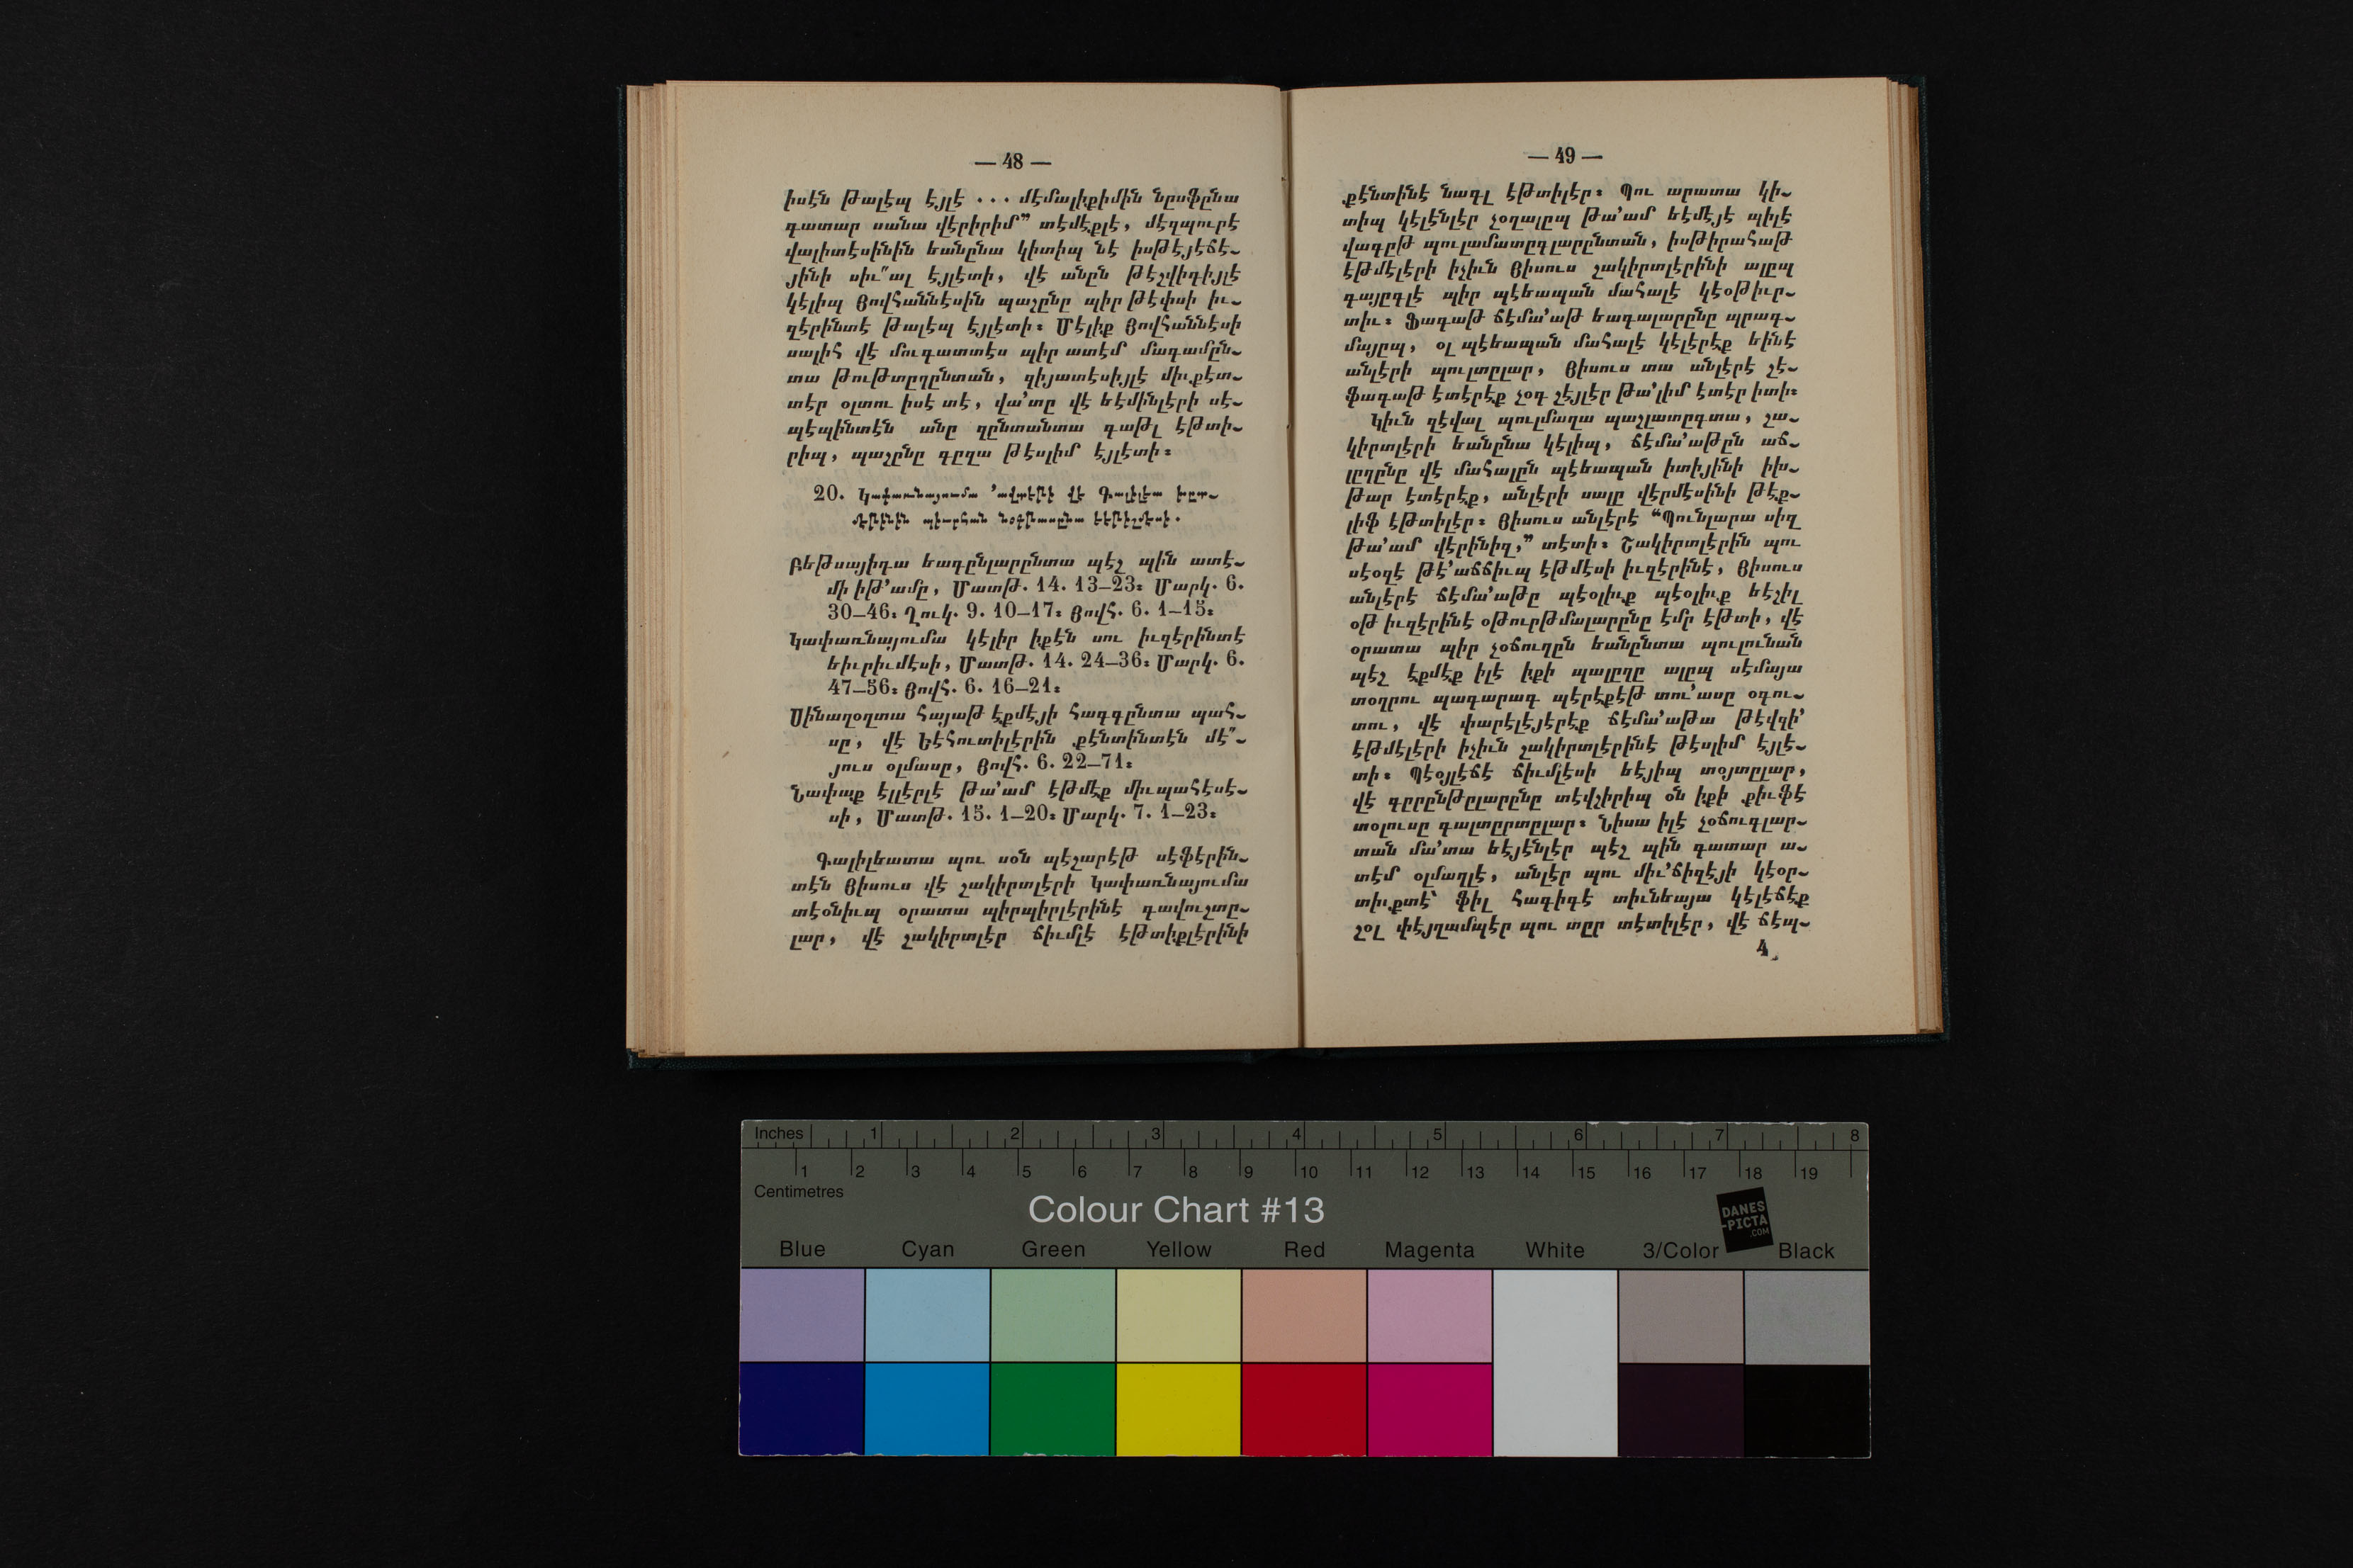 — 48 —
իսէն թալէպ էյլէ ... մէմալիքիմին նըսֆընա
գատար սանա վէրիրիմ” տէմէքլէ, մէզպուրէ
վալիտէսինին եանընա կիտիպ նէ իսթէյէճէ֊
յինի սիւ՞ալ էյլէտի, վէ անըն թէշվիգիյլէ
կէլիպ Յովհաննէսին պաշընը պիր թէփսի իւ֊
զէրինտէ թալէպ էյլէտի։ Մէլիք Յովհաննէսի
սալիհ վէ մուգատտէս պիր ատէմ մագամըն֊
տա թութտըղընտան, զիյատէսիյլէ միւքէտ֊
տէր օլտու իսէ տէ, վա՚տը վէ եէմինլէրի սէ֊
պէպինտէն անը զընտանտա գաթլ էթտի֊
րիպ, պաշընը գըզա թէսլիմ էյլէտի։
20. Կափառնայումա ՚ավտէթի վէ Գալիլէա խըտ֊
մէթինին պիւրհան նօքթասընա եէթիշմէսի.
Բեթսայիդա եազընլարընտա պէշ պին ատէ֊
մի իթ՚ամը, Մատթ. 14. 13—23։ Մարկ. 6.
30—46։ Ղուկ. 9. 10—17։ Յովհ. 6. 1—15։
Կափառնայումա կէլիր իքէն սու իւզէրինտէ
եիւրիւմէսի, Մատթ. 14. 24—36։ Մարկ. 6.
47—56։ Յովհ. 6. 16—21։
Սինաղօղտա հայաթ էքմէյի հագգընտա պահ֊
սը, վէ Եէհուտիլէրին քէնտինտէն մէ՞֊
յուս օլմասը, Յովհ. 6. 22—71։
Նափաք էլլէրլէ թա՚ամ էթմէք միւպահէսէ֊
սի, Մատթ. 15. 1—20։ Մարկ. 7. 1—23։
Գալիլեատա պու սօն պէշարէթ սէֆէրին֊
տէն Յիսուս վէ շակիրտլէրի Կափառնայումա
տէօնիւպ օրատա պիրպիրլէրինէ գավուշտը֊
լար, վէ շակիրտլէր ճիւմլէ էթտիքլէրինի
— 49 —
քէնտինէ նագլ էթտիլէր։ Պու արատա կի֊
տիպ կէլէնլէր չօղալըպ թա՚ամ եէմէյէ պիլէ
վագըթ պուլամատըգլարընտան, իսթիրահաթ
էթմէլէրի իչիւն Յիսուս շակիրտլէրինի ալըպ
գայըգլէ պիր պէեապան մահալէ կէօթիւր֊
տիւ։ Ֆագաթ ճէմա՚աթ եագալարընը պրագ֊
մայըպ, օլ պէեապան մահալէ կէլէրէք եինէ
անլէրի պուլտըլար, Յիսուս տա անլէրէ շէ֊
ֆագաթ էտէրէք չօգ շէյլէր թա՚լիմ էտէր իտի։
Կիւն զէվալ պուլմաղա պաշլատըգտա, շա֊
կիրտլէրի եանընա կէլիպ, ճէմա՚աթըն աճ֊
լըղընը վէ մահալըն պէեապան իտիյինի իխ֊
թար էտէրէք, անլէրի սալը վէրմէսինի թէք֊
լիֆ էթտիլէր։ Յիսուս անլէրէ “Պունլարա սիզ
թա՚ամ վէրինիզ,” տէտի։ Շակիրտլէրին պու
սէօզէ թէ՚աճճիւպ էթմէսի իւզէրինէ, Յիսուս
անլէրէ ճէմա՚աթը պէօլիւք պէօլիւք եէշիլ
օթ իւզէրինէ օթուրթմալարընը էմր էթտի, վէ
օրատա պիր չօճուղըն եանընտա պուլունան
պէշ էքմէք իլէ իքի պալըղը ալըպ սէմայա
տօղրու պագարագ պէրէքէթ տու՚ասը օգու֊
տու, վէ փարէլէյէրէք ճէմա՚աթա թէվզի՚
էթմէլէրի իչիւն շակիրտլէրինէ թէսլիմ էյլէ֊
տի։ Պէօյլէճէ ճիւմլէսի եէյիպ տօյտըլար,
վէ գըրընթըլարընը տէվշիրիպ օն իքի քիւֆէ
տօլուսը գալտըրտըլար։ Նիսա իլէ չօճուգլար֊
տան մա՚տա եէյէնլէր պէշ պին գատար ա֊
տէմ օլմաղլէ, անլէր պու միւ՚ճիզէյի կէօր֊
տիւքտէ՝ ֆիլ հագիգէ տիւնեայա կէլէճէք
շօլ փէյղամպէր պու տըր տէտիլէր, վէ ճէպ֊
4
Inches 1 2 3 4 5 6 7 8
1 2 3 4 5 6 7 8 9 10 11 12 13 14 15 16 17 18 19
Centimetres
Colour Chart #13
DANES
-PICTA
.COM
Blue Cyan Green Yellow Red Magenta White 3/Color Black